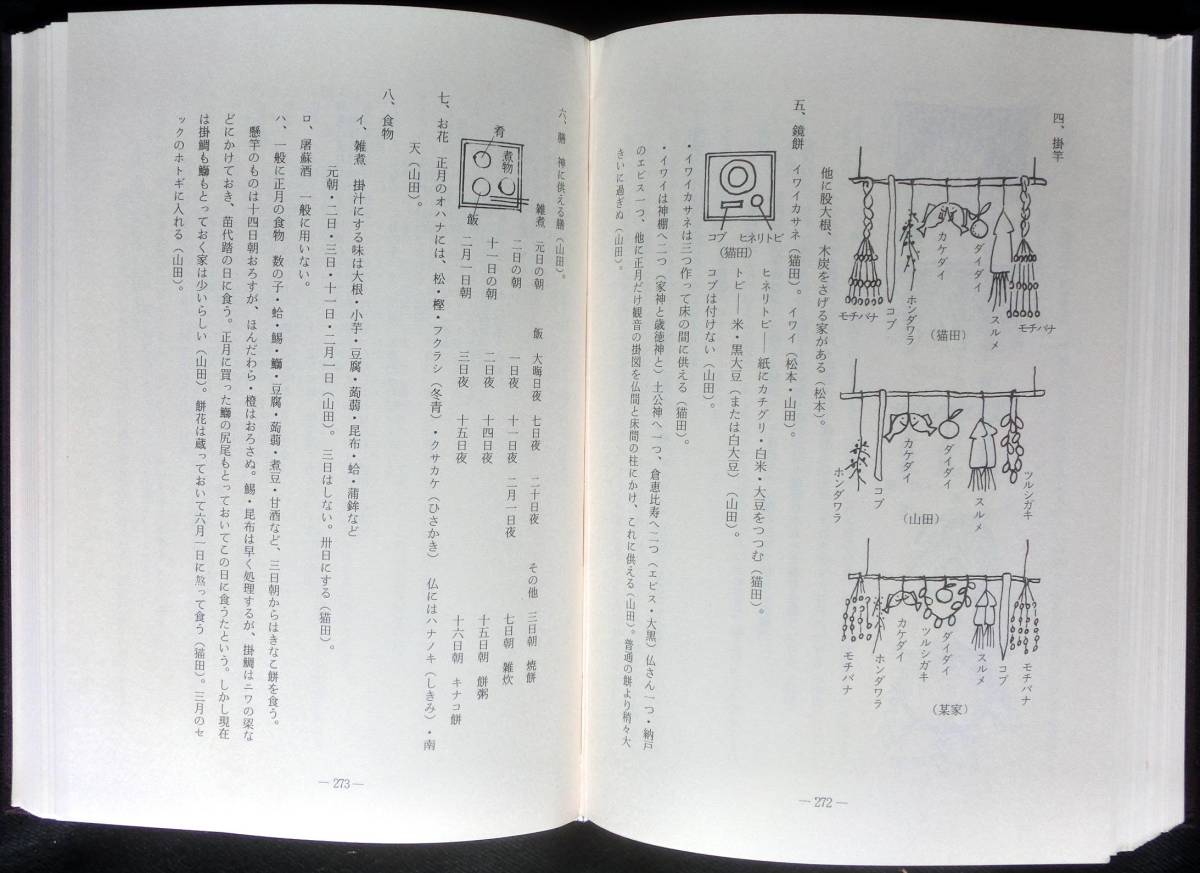 四、掛竿
モチバナ
スルメ
ダイダイ
カケダイ
ホンダワラ
コブ
モチバナ
(猫田)
ツルシガキ
スルメ
ダイダイ
カケダイ
コブ
ホンダワラ
(山田)
モチバナ
コブ
スルメ
ダイダイ
ツルシガキ
カケダイ
ホンダワラ
モチバナ
(某家)
他に股大根、木炭をさげる家がある(松本)。
五、鏡餅 イワイカサネ(猫田)。イワイ(松本・山田)。
ヒネリトビ
コブ
(猫田)
ヒネリトビ――紙にカチグリ・白米・大豆をつつむ(猫田)。
トビ――米・黒大豆(または白大豆)(山田)。
コブは付けない(山田)。
・イワイカサネは三つ作って床の間に供える(猫田)。
・イワイは神棚へ二つ(家神と歳徳神と)土公神へ一つ、倉恵比寿へ二つ(エビス・大黒)仏さん一つ・納戸
のエビス一つ、他に正月だけ観音の掛図を仏間と床間の柱にかけ、これに供える(山田)。普通の餅より稍々大
きいに過ぎぬ(山田)。
— 272 —
六、膳 神に供える膳(山田)。
肴
煮物
飯
雑煮 元日の朝 飯 大晦日夜 七日夜 二十日夜 その他 三日朝 焼餅
二日の朝 一日夜 十一日夜 二月一日夜 七日朝 雑炊
十一日の朝 二日夜 十四日夜 十五日朝 餅粥
二月一日朝 三日夜 十五日夜 十六日朝 キナコ餅
七、お花 正月のオハナには、松・樫・フクラシ(冬青)・クサカケ(ひさかき) 仏にはハナノキ(しきみ)・南
天(山田)。
八、食物
イ、雑煮 掛汁にする味は大根・小芋・豆腐・蒟蒻・昆布・蛤・蒲鉾など
元朝・二日・三日・十一日・二月一日(山田)。三日はしない。卅日にする(猫田)。
ロ、屠蘇酒 一般に用いない。
ハ、一般に正月の食物 数の子・蛤・鯣・鰤・豆腐・蒟蒻・煮豆・甘酒など、三日朝からはきなこ餅を食う。
懸竿のものは十四日朝おろすが、ほんだわら・橙はおろさぬ。鯣・昆布は早く処理するが、掛鯛はニワの梁な
どにかけておき、苗代踏の日に食う。正月に買った鰤の尻尾もとっておいてこの日に食うたという。しかし現在
は掛鯛も鰤もとっておく家は少いらしい(山田)。餅花は蔵っておいて六月一日に煎って食う(猫田)。三月のセ
ックのホトギに入れる(山田)。
— 273 —